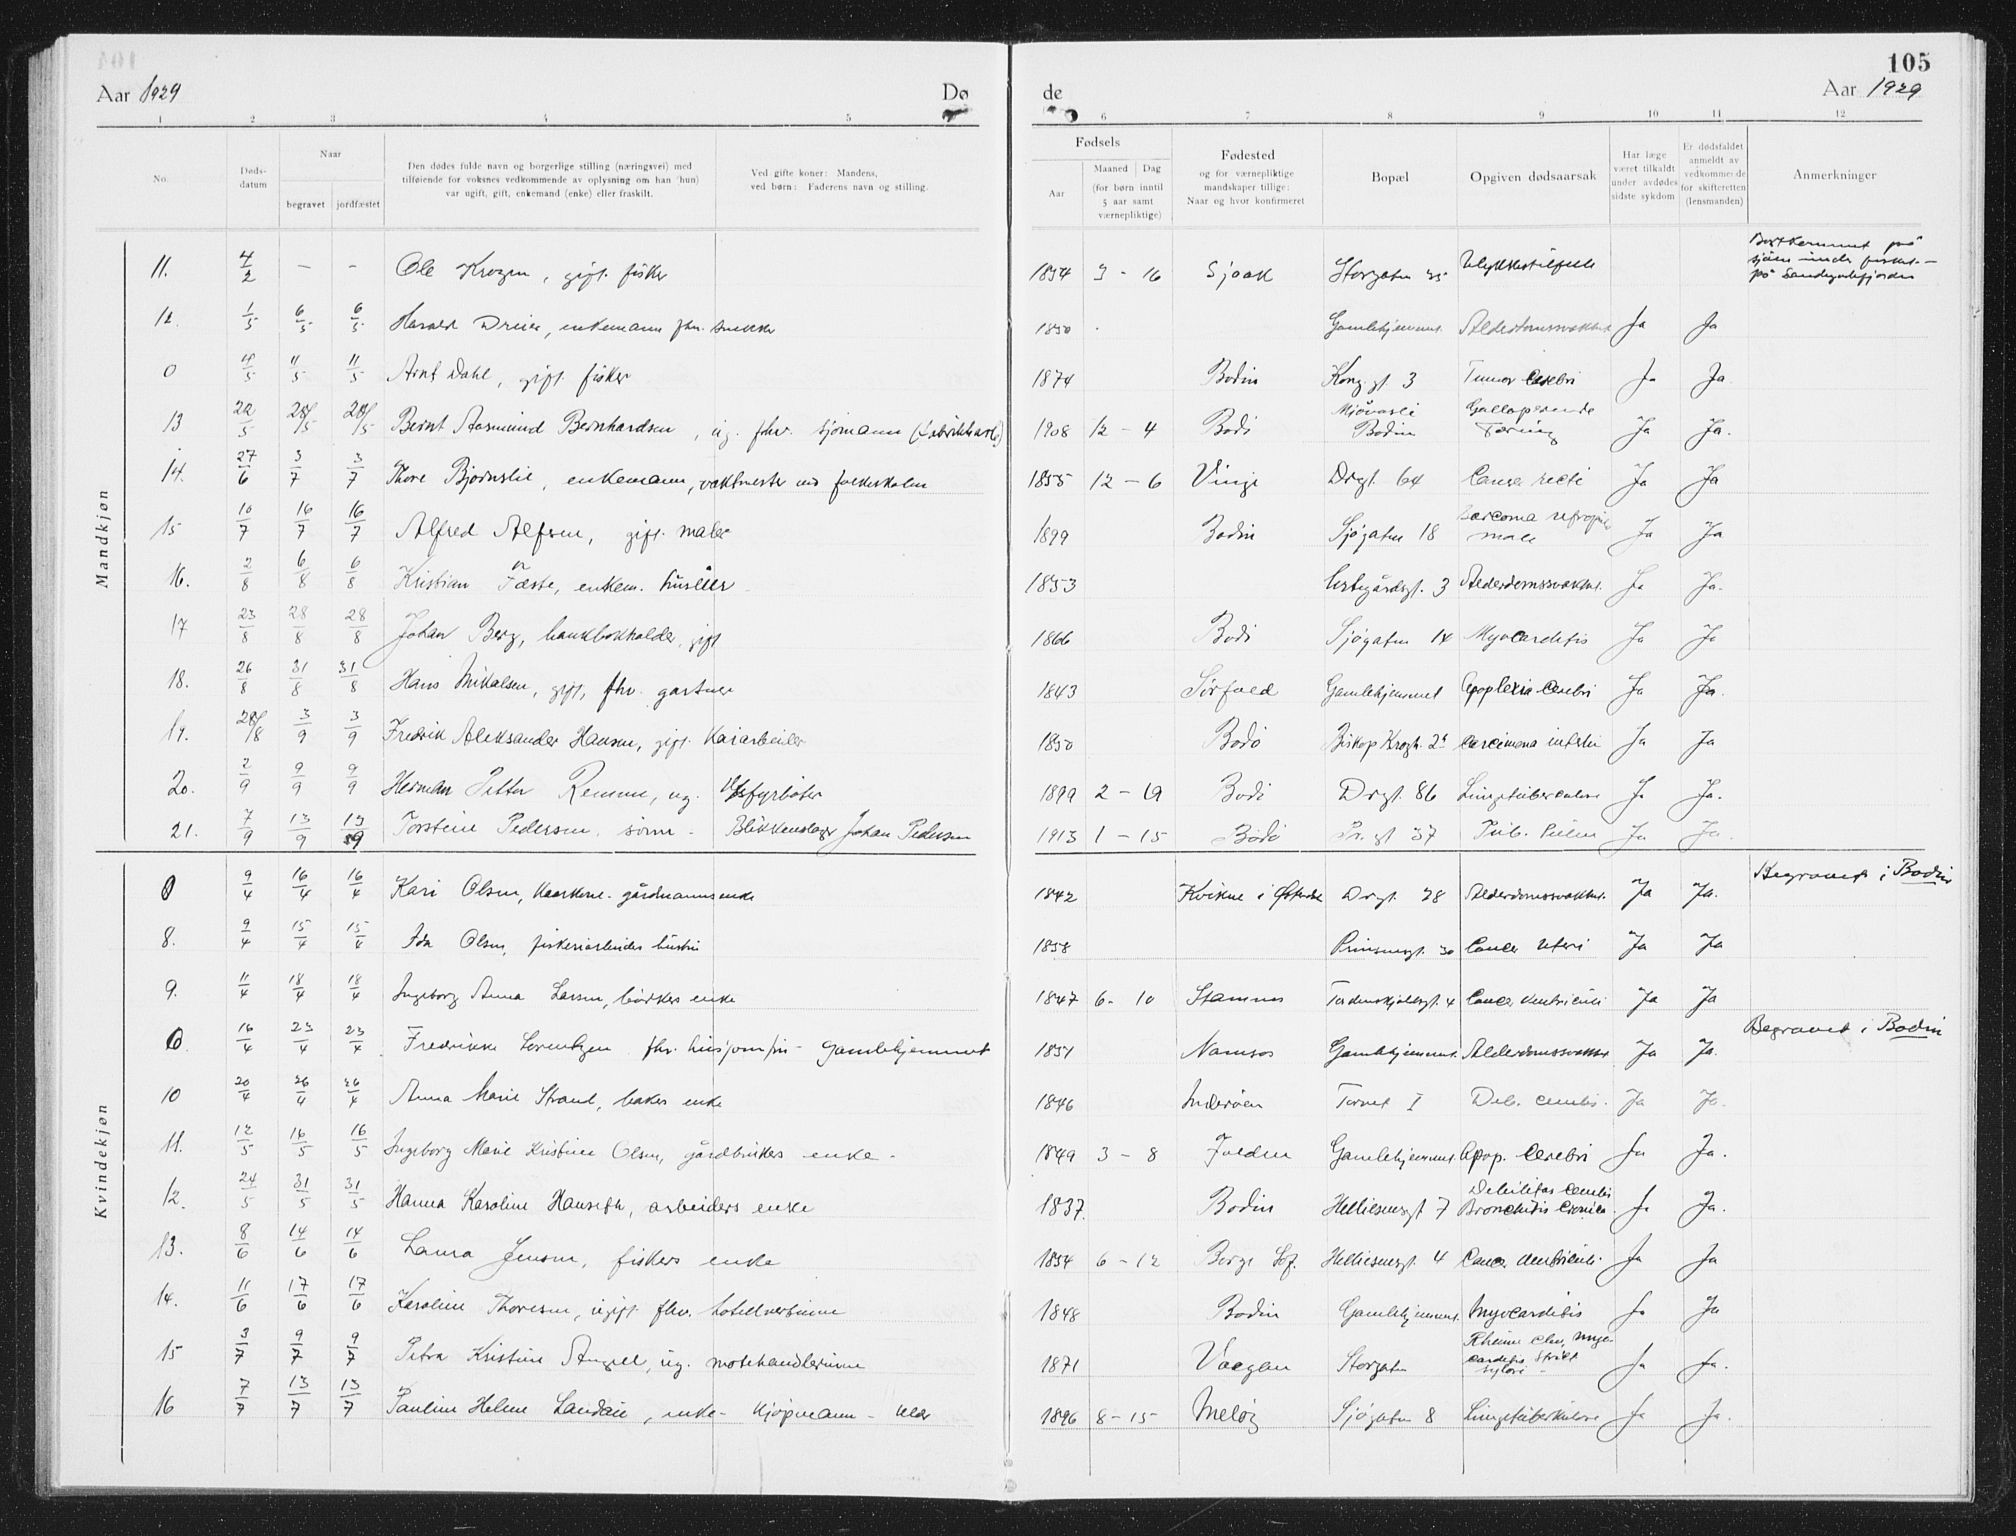 105
Aar 1929 Dø de Aar 1929
1 2 3 4 5 6 7 8 9 10 11 12
No. Døds-datum Naar begravet jordfæstet
Den dødes fulde navn og borgerlige stilling (næringsvei) med
tilføiende for voksnes vedkommende av oplysning om han (hun)
var ugift, gift, enkemand (enke) eller fraskilt.
Ved gifte koner: Mandens,
ved børn: Faderens navn og stilling.
Fødsels
Aar Maaned Dag
(for børn inntil
5 aar samt
værnepliktige)
Fødested
og for værnepliktige
mandskaper tillige:
Naar og hvor konfirmeret
Bopæl
Opgiven dødsaarsak
Har læge
været tilkaldt
under avdødes
sidste sykdom
Er dødsfaldet
anmeldt av
vedkommende
for skifteretten
(lensmanden)
Anmerkninger
Mandkjøn
11. 4/2 – – Ole Krogen, gift. fisker 1854 3 – 16 Sjoak Storgaten 35 Ulykkestilfelle Bortkommet på sjøen under fisket på
12. 1/5 6/5 6/5 Harald Dreier, enkemann fhv. snekker 1850 Gamlehjemmet. Alderdomssvakhet Ja Ja
0 4/5 11/5 11/5 Arnt Dahl, gift. fisker 1874 Bodin Kong. gt. 3 Tumor Cerebri Ja Ja
13 22/5 28/5 28/5 Bernt Aasmund Bernhardsen, ug. fhv. sjømann 1908 12 – 4 Bodø Bodin Galloperende Tæring Ja Ja.
14. 27/6 3/7 3/7 Thore Bjørnslie, enkemann, vaktmester ved folkeskolen 1855 12 – 6 Vinge Drgt. 64 Cancer recti Ja Ja
15 10/7 16/7 16/7 Alfred Alfsen, gift. maler 1899 Bodin Sjøgaten 18 Sarcoma Ja Ja
16. 2/8 6/8 6/8 Kristian Fæste, enkem. huseier 1853 3 Alderdomssvakhet. Ja Ja.
17 23/8 28/8 28/8 Johan Berg, bankbokholder, gift 1866 Bodø Sjøgaten 14 Myocarditis Ja Ja
18. 26/8 31/8 31/8 Hans Mikalsen, gift, fhv. gartner 1843 Sørfold Gamlehjemmet Apoplexia Cerebri Ja Ja.
19. 28/8 3/9 3/9 Fredrik Aleksander Hansen, gift. Kaiarbeider 1850 Bodø Biskop Krogh. Ja Ja
20. 2/9 9/9 9/9 Herman Petter Remme, ug. fyrbøter 1899 2 – 19 Bodø Drgt. 86 Lungetuberkulose Ja Ja.
21. 7/9 13/9 13/9 Torstein Pedersen. sønn – Blikkenslager Johan Pedersen 1913 1 – 15 Bodø Pr. gt 37 Tub. Pulm Ja Ja
Kvindekjøn
0 9/4 16/4 16/4 Kari Olsen, gårdmannsenke 1842 Kvikne i Østerdal Drgt. 28 Alderdomssvakhet. Ja Ja. Begravet i Bodin
8. 9/4 15/4 15/4 Ida Olsen, fiskeriarbeiders hustru 1858 Prinsensgt. 30 Cancer Uteri Ja Ja
9. 11/4 18/4 18/4 Ingeborg Anna Larsen, bødkers enke 1847 6 – 10 Stamnes Tordenskjoldsgt. 4 Cancer Ventriculi Ja Ja
0 16/4 23/4 23/4 Fredrikke Lorentzen fhv. husjomfru – Gamlehjemmet 1851 Namsos Gamlehjemmet. Alderdomssvakhet Ja Ja. Begravet i Bodin
10 20/4 26/4 26/4 Anna Marie Strand, bakers enke 1846 Inderøen Torvet I Deb. Ja Ja.
11. 12/5 16/5 16/5 Ingeborg Marie Kristine Olsen, gårdbrukers enke – 1849 3 – 8 Folden Gamlehjemmet. Apop. Cerebri Ja Ja.
12. 24/5 31/5 31/5 Hanna Karoline Hanseth, arbeiders enke 1837. Bodin Helliesensgt 7 Debilitas Bronchitis Cronica Ja Ja.
13. 8/6 14/6 14/6 Laura Jensen, fiskers enke 1854 6 – 12 Borge Lof. Helliesensgt. 4 Cancer Ventriculi. Ja Ja
14. 11/6 17/6 17/6 Karoline Thoresen, ugift. fhv. hotellvertinne 1848 Bodin Gamlehjemmet. Myocarditis Ja Ja
15 3/7 9/7 9/7 Petra Kristine Angell, ug. motehandlerinne 1871 Vaagan Storgaten Rheum. Ja Ja.
16 7/7 13/7 13/7 Pauline Helene Landau, enke – kjøpmann – 1896 8 – 15 Meløy Sjøgaten 8 Lungetuberkulose Ja Ja.